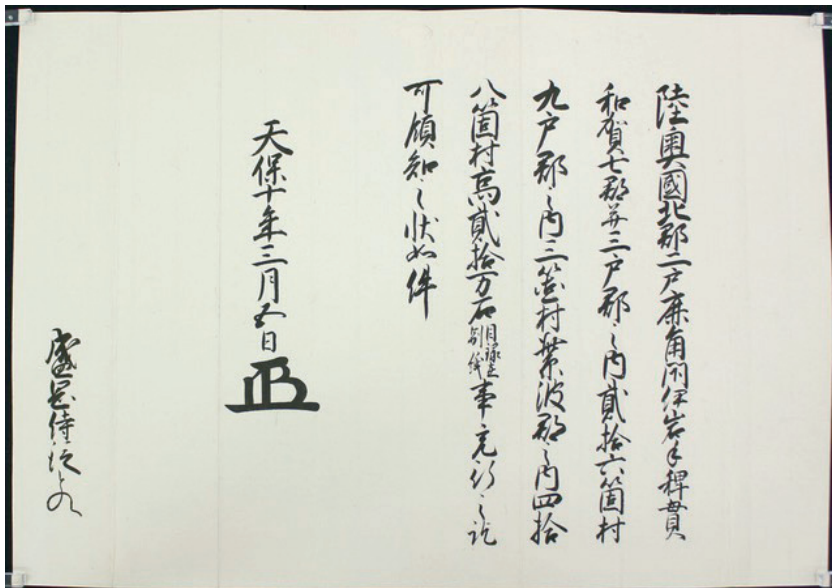 陸奥國北郡二戸鹿角閉伊岩手稗貫
和賀七郡并三戸郡之内貳拾六箇村
九戸郡之内三箇村紫波郡之内四拾
八箇村高貳拾万石目録在別紙事充行之訖
可領知之状如件
天保十年三月五日
盛岡侍従とのへ